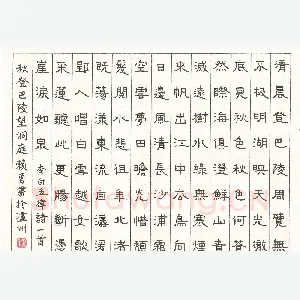 清晨登巴陵周覽無
不極明湖映天光徹
底見秋色秋色何蒼
然際海俱澄鮮山青
滅遠樹水綠無寒煙
來帆出江中去鳥向
日邊風清長沙浦山
空雲夢田瞻光惜頹
髮閱水悲徂年北渚
既蕩漾東流自潺湲
郢人唱白雪越女唱
采蓮聽此更腸斷憑
崖淚如泉 李白五律詩一首
秋登巴陵望洞庭